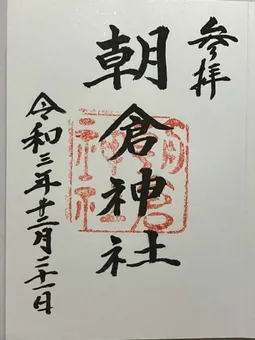 参拝
朝倉神社
朝倉
神社
令和三年十二月二十一日